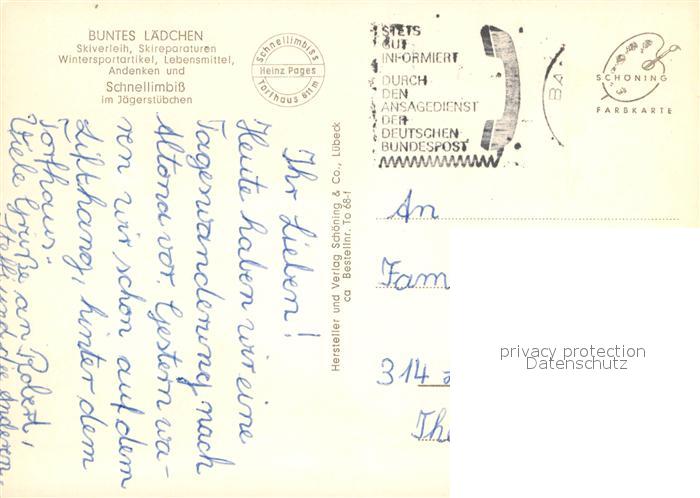 BUNTES LÄDCHEN
Skiverleih, Skireparaturen
Wintersportartikel, Lebensmittel,
Andenken und
Schnellimbiß
im Jägerstübchen
Schnellimbiss
Heinz Pages
Torfhaus 811 m
STETS
GUT
INFORMIERT
DURCH
DEN
ANSAGEDIENST
DER
DEUTSCHEN
BUNDESPOST
BA
SCHÖNING
FARBKARTE
Ihr Lieben!
Heute haben wir eine
Tageswanderung nach
Altona vor. Gestern wa-
ren wir schon auf dem
Lifthang, hinter dem
Torfhaus.
Viele Grüße an Robert,
und die anderen
Hersteller und Verlag Schöning & Co., Lübeck
ca Bestellnr. To 68-f
An
Fam
314
The
privacy protection
Datenschutz